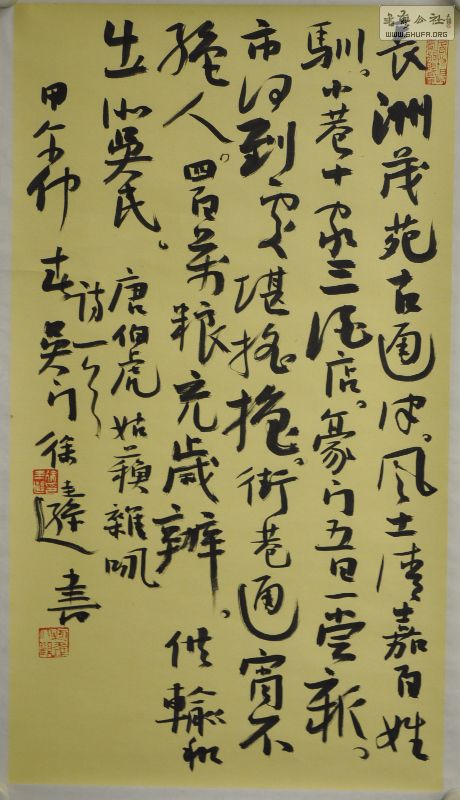 公社
WWW.SHUFA.ORG
長洲茂苑古通津。風土清嘉百姓
馴。小巷十家三酒店。豪门五日一尝新。
市河到處堪摇櫓。街巷通宵不
絶人。四百萬粮充歲辦。供輸
出似吳民。
唐伯虎姑蘇雜咏
诗一首
甲午仲春吴门徐書